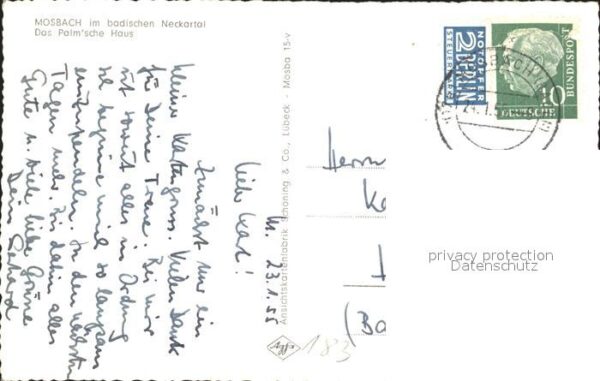 MOSBACH im badischen Neckartal
Das Palm'sche Haus
M. 23.1.55
Lieber Karl!
Zunächst nur ein
kleiner Kartengruss. Vielen Dank
für Deine Treue. Bei mir
ist soweit alles in Ordnung
u. beginne mich so langsam
einzupendeln. In den nächsten
Tagen mehr. Bis dahin alles
Gute u. viele liebe Grüsse
Dein Gerhard
Ansichtskartenfabrik Schöning & Co., Lübeck - Mosba 15-v
183
NOTOPFER
2 BERLIN
STEUERMARKE
10
DEUTSCHE
BUNDESPOST
Herrn
K
(Ba
privacy protection
Datenschutz